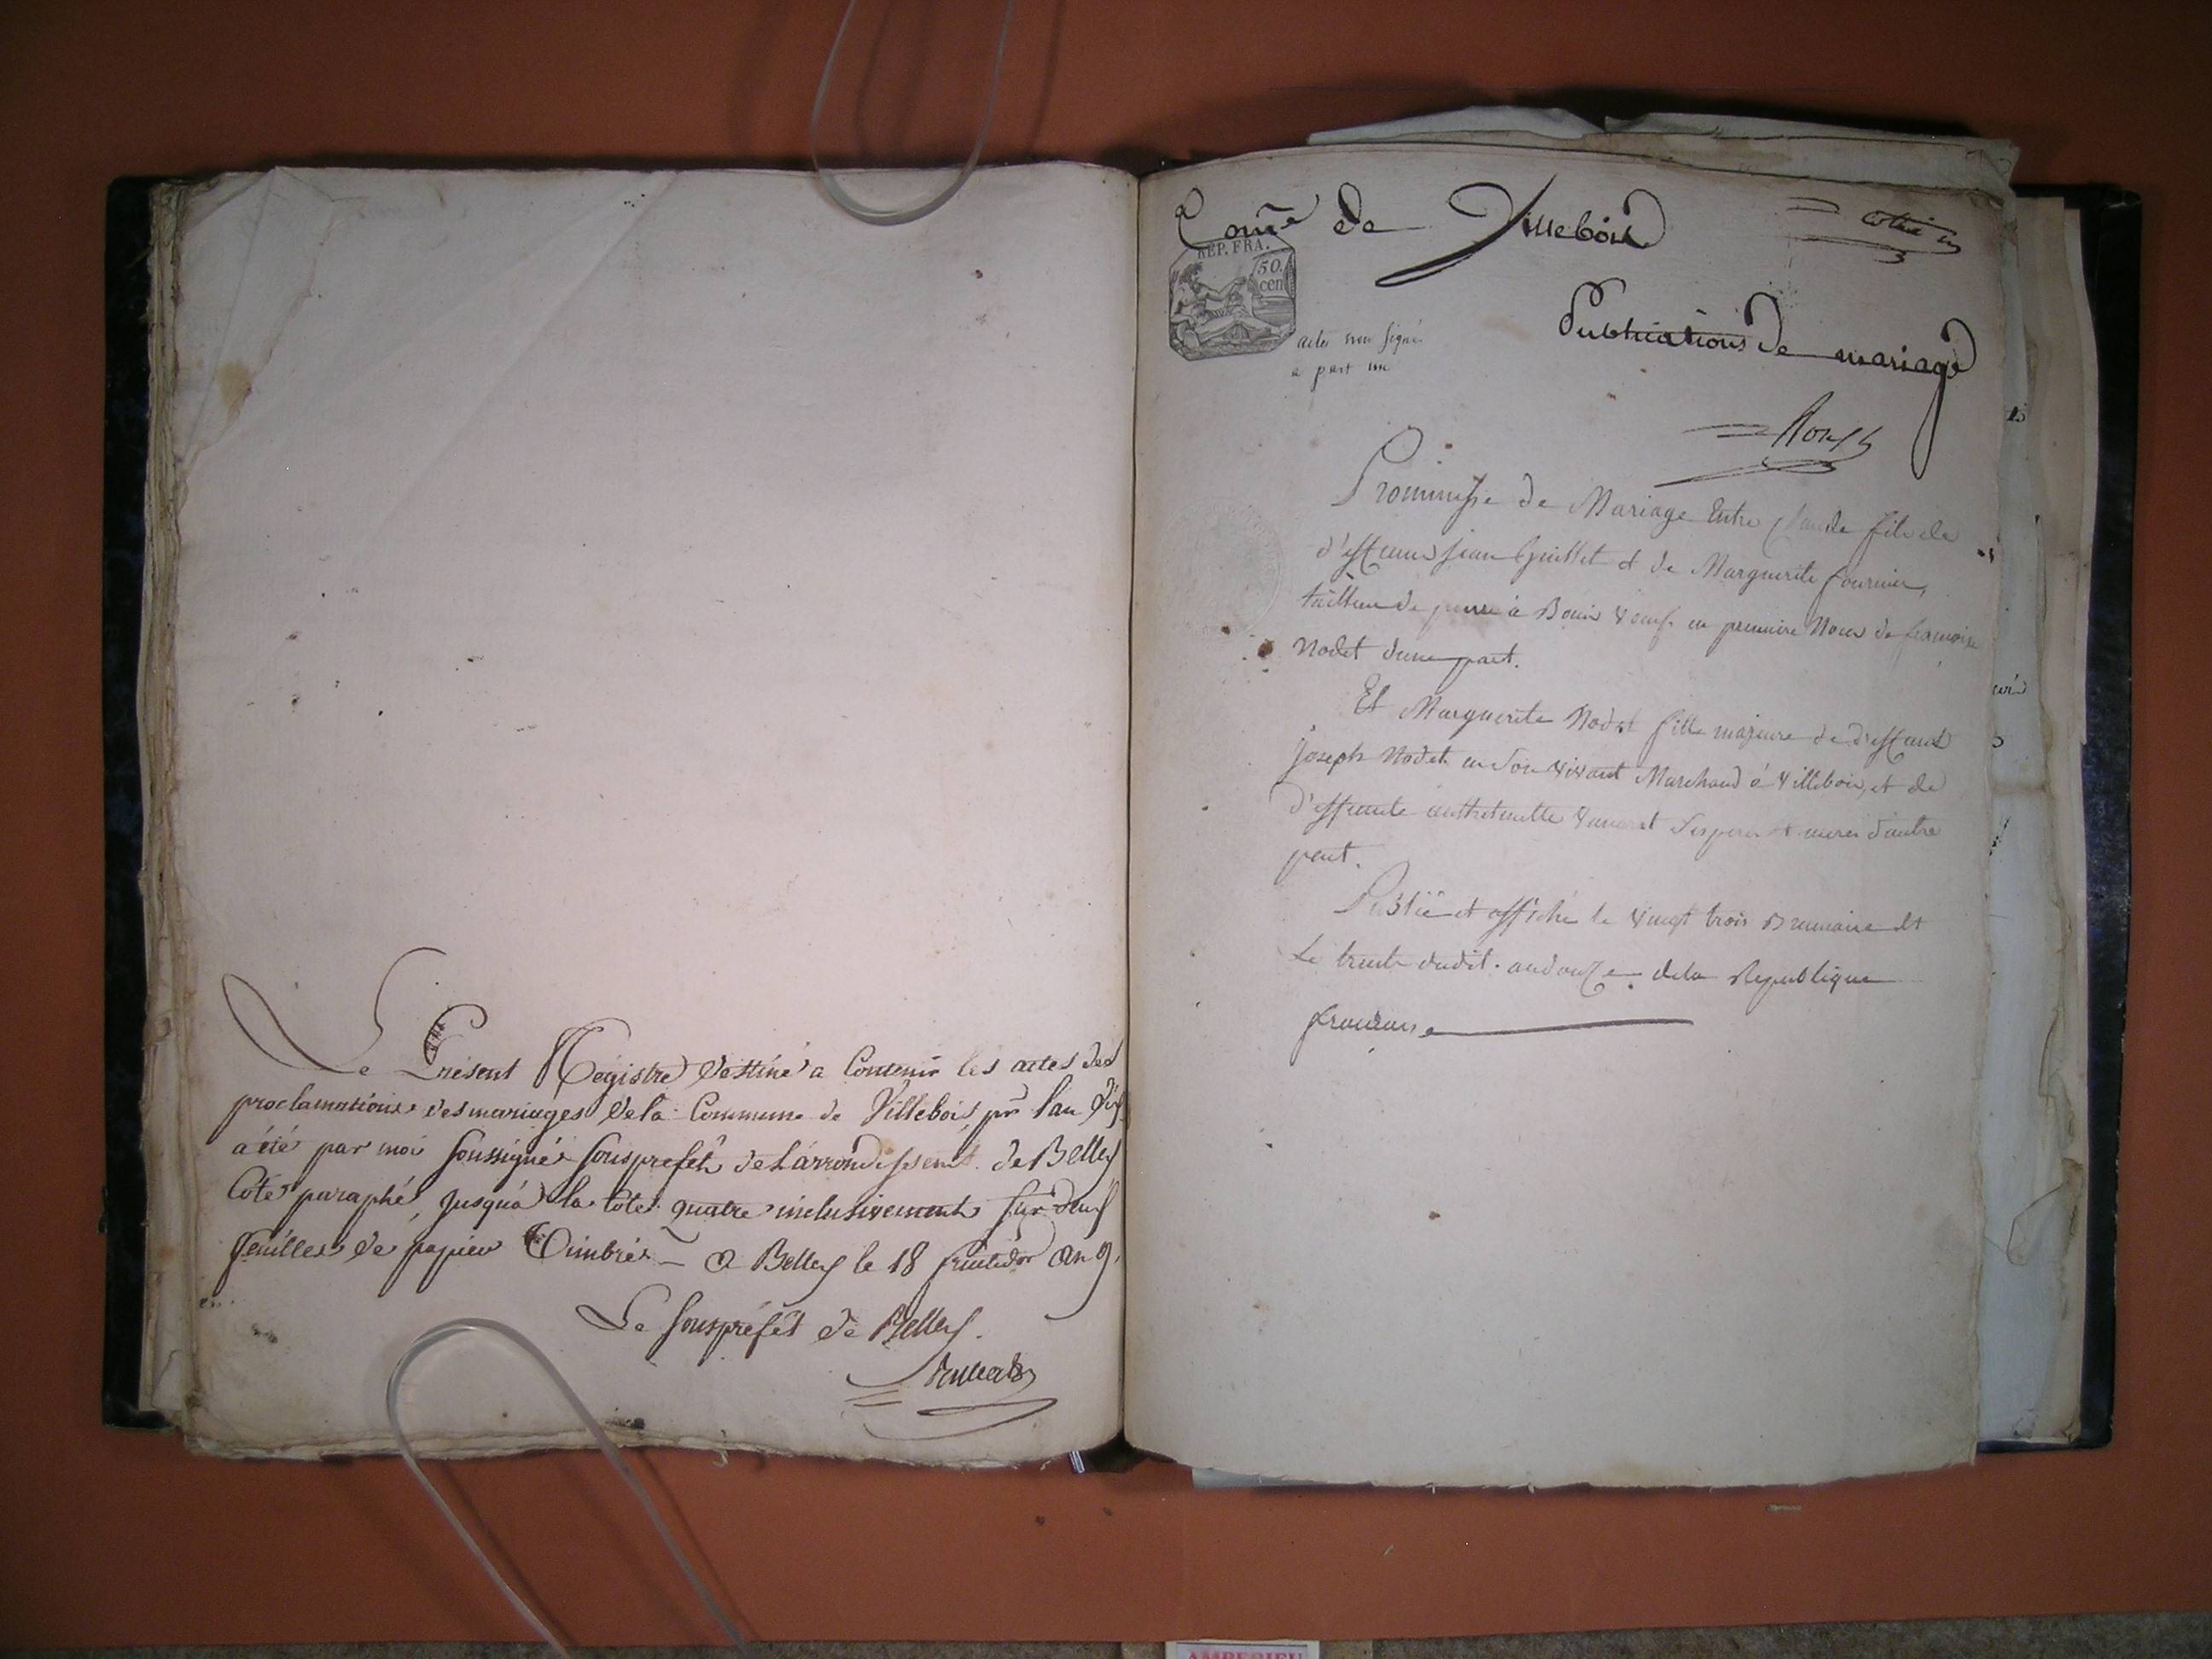 Le Présent Régistre destiné a Contenir les actes des
proclamations des mariages de la Commune de Villebois, pr l'an dix
a été par moi soussigné souspréfet de L'arrondissement de Belley
Coté paraphé, jusqu'à la Cote quatre inclusivement sur deux
feuilles de papier Timbrés - a Belley le 18 fructidor an 9.
Le souspréfet de Belley.
Come de Villebois
REP. FRA.
50.
cen
Publications de mariage
actes non signés
a part un
Prommesse de Mariage Entre Claude fils de
d'effeunts jean Guillet et de Marguerite fournier,
tailleur de pierre à Bouis Veuf en premiere Noces de francoise
Nodet dune part.
Et Marguerite Nodet fille majeure de d'effeunt
joseph Nodet en son vivant Marchand à Villebois, et de
d'effeunte anthelmette ses peres et meres d'autre
part.
Publié et affiché le vingt trois Brumaire et
Le trente dudit. an douze. de la Republique
francaise
AMBERIEU